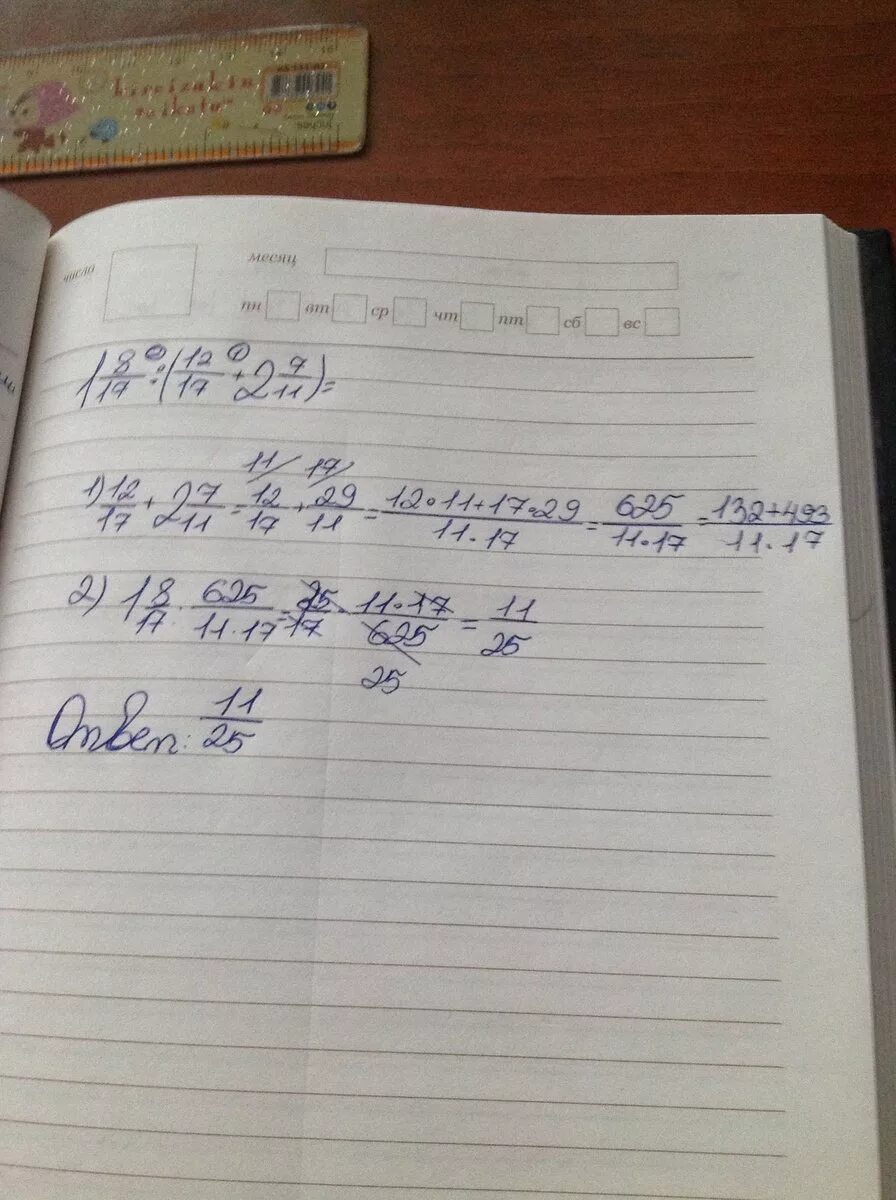 число
месяц
пн вт ср чт пт сб вс
1 8/17 : (12/17 + 2 7/11) =
11/ 17/
1) 12/17 + 2 7/11 = 12/17 + 29/11 = 12·11+17·29/11·17 = 625/11·17 = 132+493/11·17
2) 1 8/17 · 625/11·17 = 25/17 · 11·17/625 = 11/25
25
Ответ: 11/25